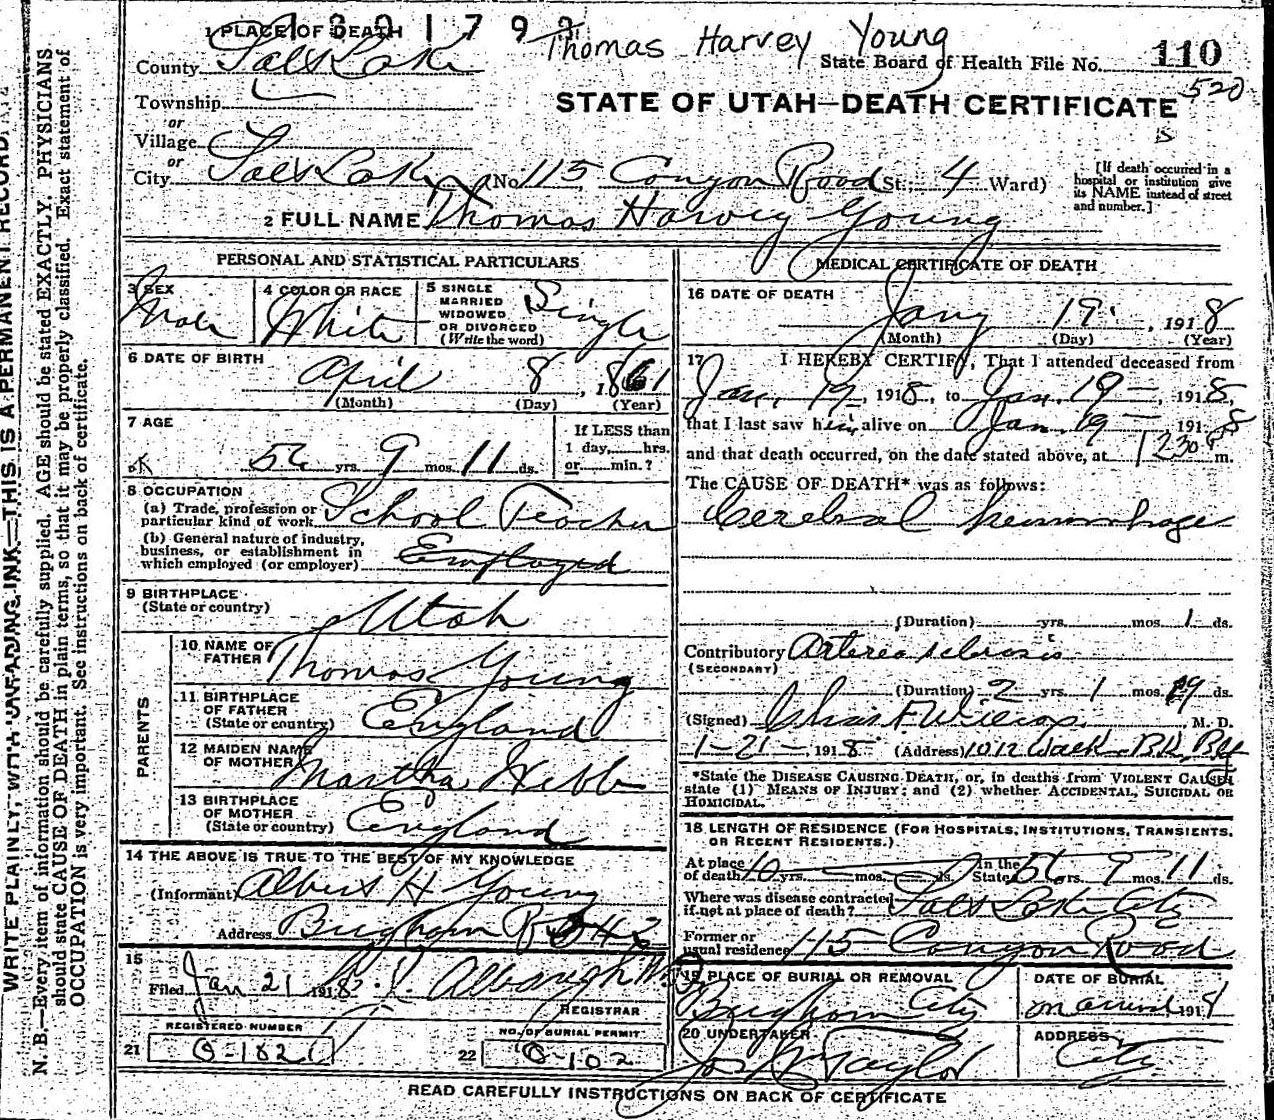 1 3 0 1 7 9 3
Thomas Harvey Young
1 PLACE OF DEATH
County Salt Lake
State Board of Health File No. 110
520
Township
or
Village
STATE OF UTAH—DEATH CERTIFICATE
or
City Salt Lake (No 115 Canyon Road St; 4 Ward)
[If death occurred in a
hospital or institution give
its NAME instead of street
and number.]
2 FULL NAME Thomas Harvey Young
PERSONAL AND STATISTICAL PARTICULARS
3 SEX Male
4 COLOR OR RACE White
5 SINGLE
MARRIED
WIDOWED
OR DIVORCED
(Write the word)
Single
6 DATE OF BIRTH
April 8, 1861
(Month) (Day) (Year)
7 AGE
56 yrs. 9 mos. 11 ds.
If LESS than
1 day, hrs.
or min.?
8 OCCUPATION
(a) Trade, profession or
particular kind of work School Teacher
(b) General nature of industry,
business, or establishment in
which employed (or employer) Employed
9 BIRTHPLACE
(State or country) Utah
PARENTS
10 NAME OF
FATHER Thomas Young
11 BIRTHPLACE
OF FATHER
(State or country) England
12 MAIDEN NAME
OF MOTHER Martha Hebb
13 BIRTHPLACE
OF MOTHER
(State or country) England
14 THE ABOVE IS TRUE TO THE BEST OF MY KNOWLEDGE
(Informant) Albert H Young
Address Brigham
15
Filed Jan 21 1918
REGISTRAR
REGISTERED NUMBER
21 O-102
NO. OF BURIAL PERMIT
22 O-102
MEDICAL CERTIFICATE OF DEATH
16 DATE OF DEATH
Jany 19, 1918
(Month) (Day) (Year)
17 I HEREBY CERTIFY, That I attended deceased from
Jan. 19, 1918, to Jan. 19, 1918,
that I last saw him alive on Jan. 19 1918
and that death occurred, on the date stated above, at 1230 m.
The CAUSE OF DEATH* was as follows:
Cerebral hemorrhage
(Duration) yrs. mos. 1 ds.
Contributory Arterea sclerosis
(SECONDARY)
(Duration) 2 yrs. 1 mos. 19 ds.
(Signed) Chas F Wilcox M. D.
1-21-, 1918 (Address) 1012 Walk. Bk. Bld
*State the DISEASE CAUSING DEATH, or, in deaths from VIOLENT CAUSES
state (1) MEANS OF INJURY; and (2) whether ACCIDENTAL, SUICIDAL OR
HOMICIDAL.
18 LENGTH OF RESIDENCE (FOR HOSPITALS, INSTITUTIONS, TRANSIENTS,
OR RECENT RESIDENTS.)
At place
of death 10 yrs. mos. ds. In the
State 56 yrs. 9 11 ds.
Where was disease contracted
if not at place of death? Salt Lake City
Former or
usual residence 115 Canyon Road
19 PLACE OF BURIAL OR REMOVAL
Brigham City
DATE OF BURIAL
191
20 UNDERTAKER
Jos Wm Taylor
ADDRESS
City
READ CAREFULLY INSTRUCTIONS ON BACK OF CERTIFICATE
WRITE PLAINLY, WITH UNFADING INK—THIS IS A PERMANENT RECORD
N. B.—Every item of information should be carefully supplied. AGE should be stated EXACTLY. PHYSICIANS
should state CAUSE OF DEATH in plain terms, so that it may be properly classified. Exact statement of
OCCUPATION is very important. See instructions on back of certificate.